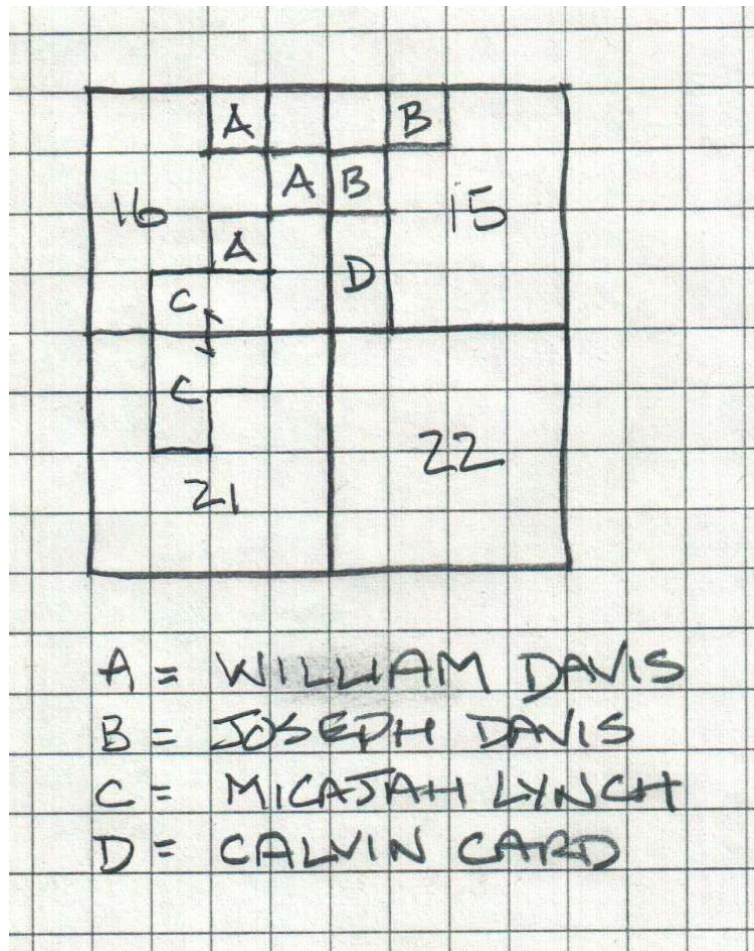 A B
16 A B 15
A
C D
C
22
21
A = WILLIAM DAVIS
B = JOSEPH DAVIS
C = MICAJAH LYNCH
D = CALVIN CARD